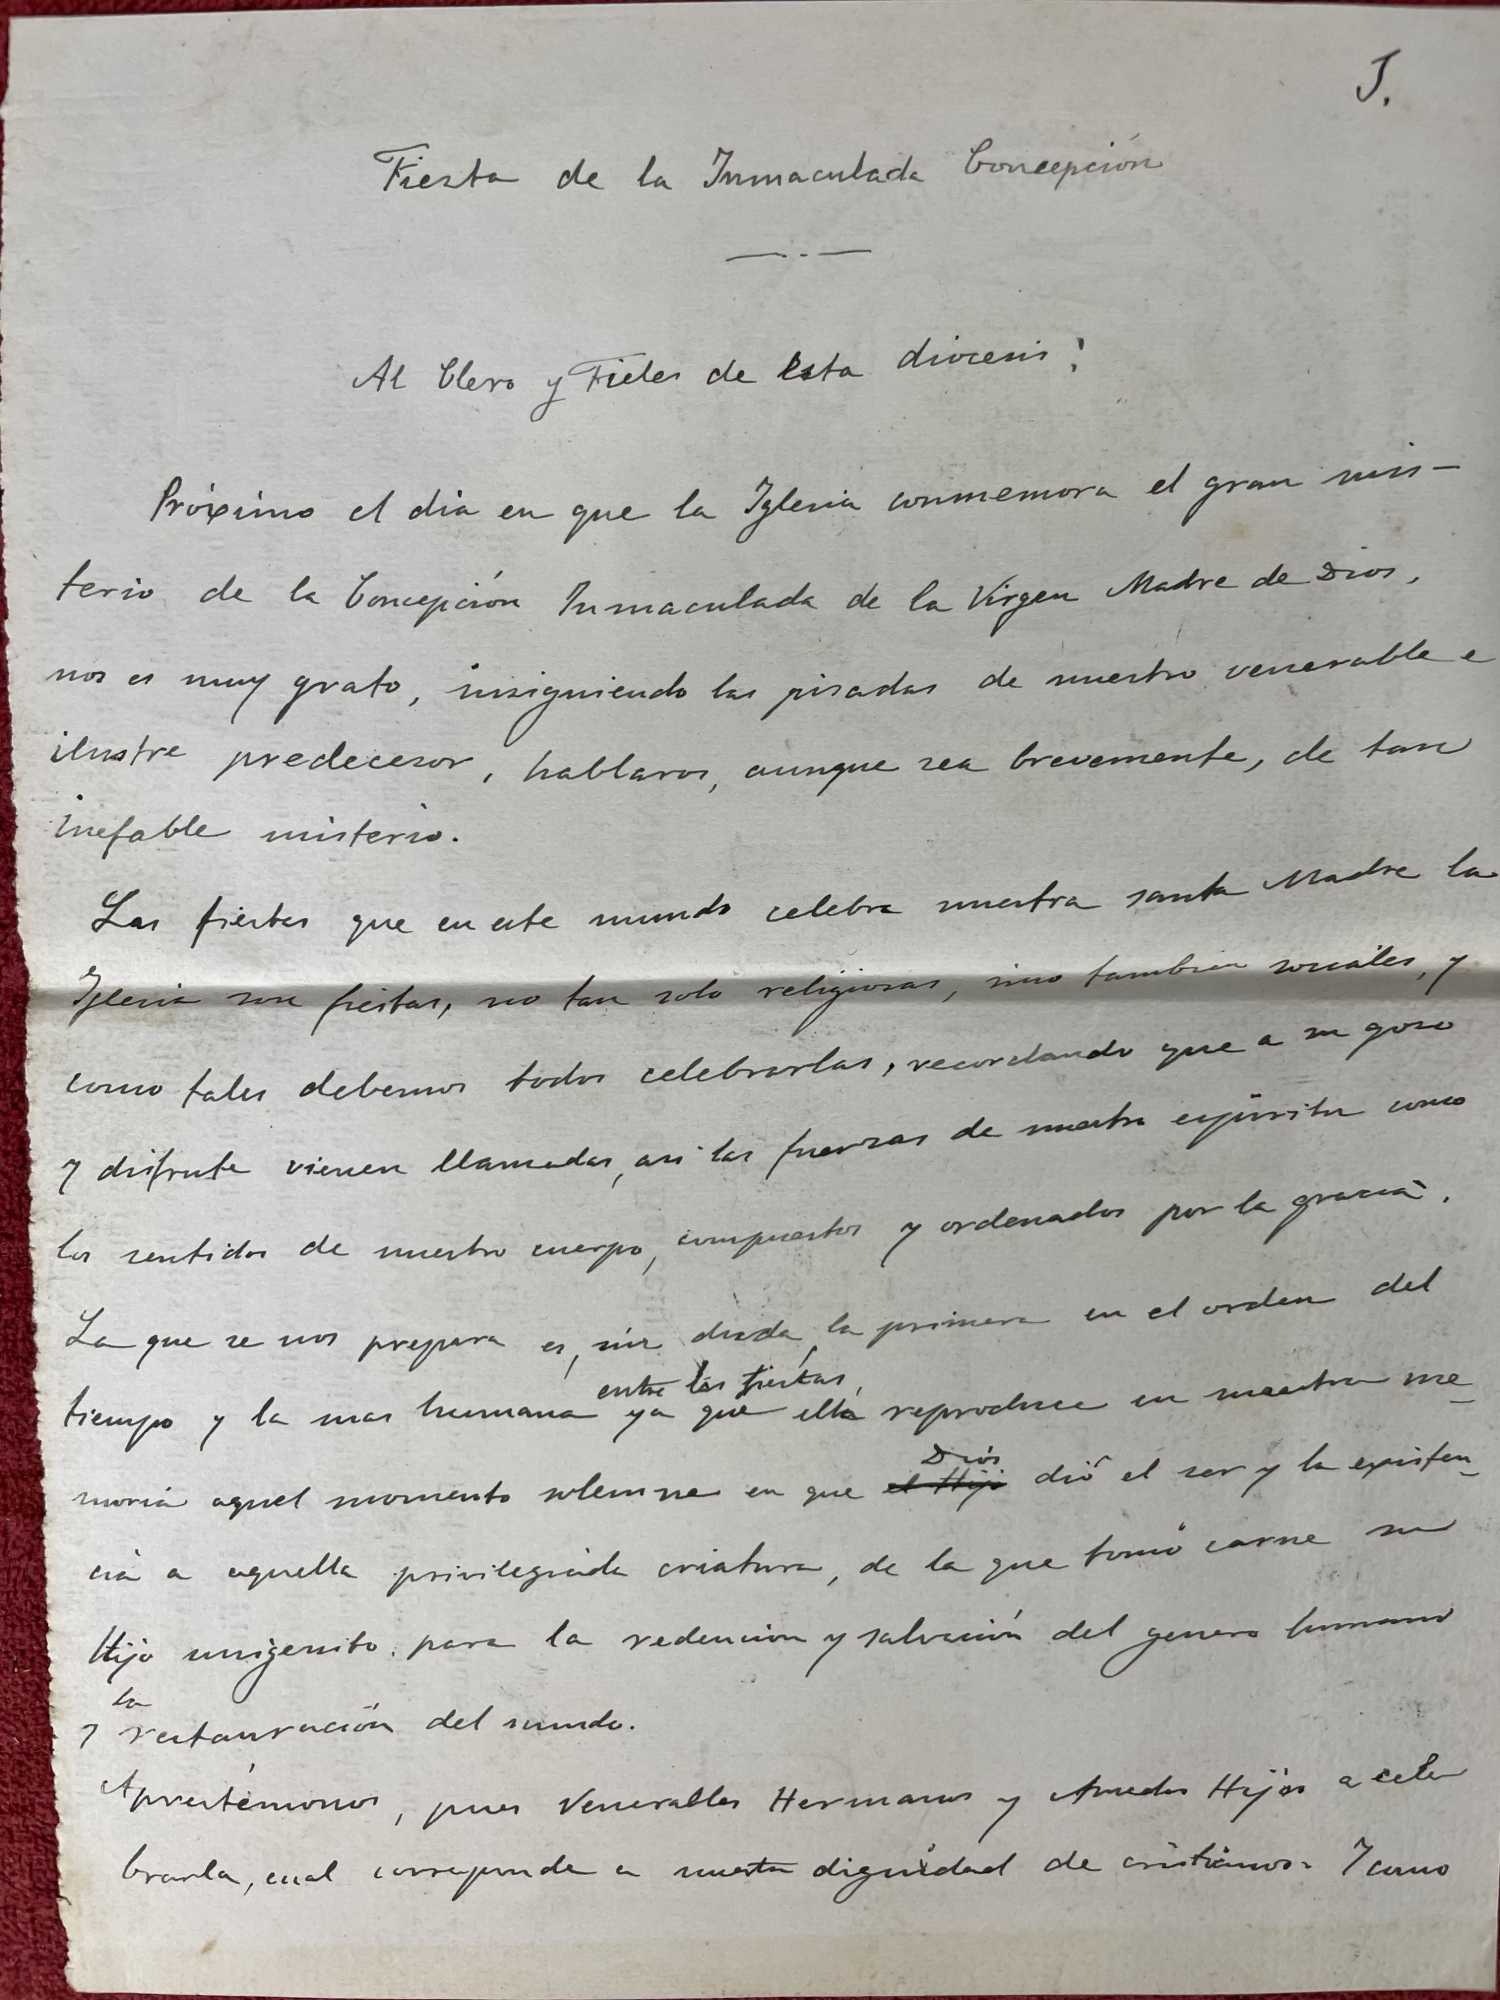 J.
Fiesta de la Inmaculada Concepción
Al Clero y Fieles de Esta diocesis:
Próximo el dia en que la Iglesia conmemora el gran mis-
terio de la Concepción Inmaculada de la Virgen Madre de Dios,
nos es muy grato, insiguiendo las pisadas de nuestro venerable e
ilustre predecesor, hablaros, aunque sea brevemente, de tan
inefable misterio.
Las fiestas que en este mundo celebra nuestra santa Madre la
Iglesia son fiestas, no tan solo religiosas, sino tambien sociales, y
como tales debemos todos celebrarlas, recordando que a su goso
y disfrute vienen llamadas, asi las fuerzas de nuestro espiritu como
los sentidos de nuestro cuerpo, compuestos y ordenados por la gracia.
La que se nos prepara es, sin duda, la primera en el orden del
entre las fiestas,
tiempo y la mas humana ya que ella reproduce en nuestra me-
Dios
moria aquel momento solemne en que el Hijo dió el ser y la existen-
cia a aquella privilegiada criatura, de la que tomó carne su
Hijo unigenito para la redencion y salvación del genero humano
la
y restauración del mundo.
Aprestémonos, pues Venerables Hermanos y Amados Hijos a cele
brarla, cual corresponde a nuestra dignidad de cristianos. Y como